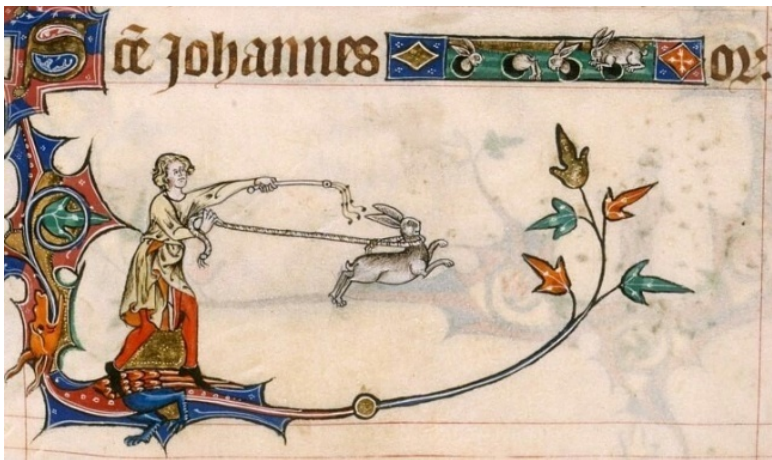 Scē Johannes or